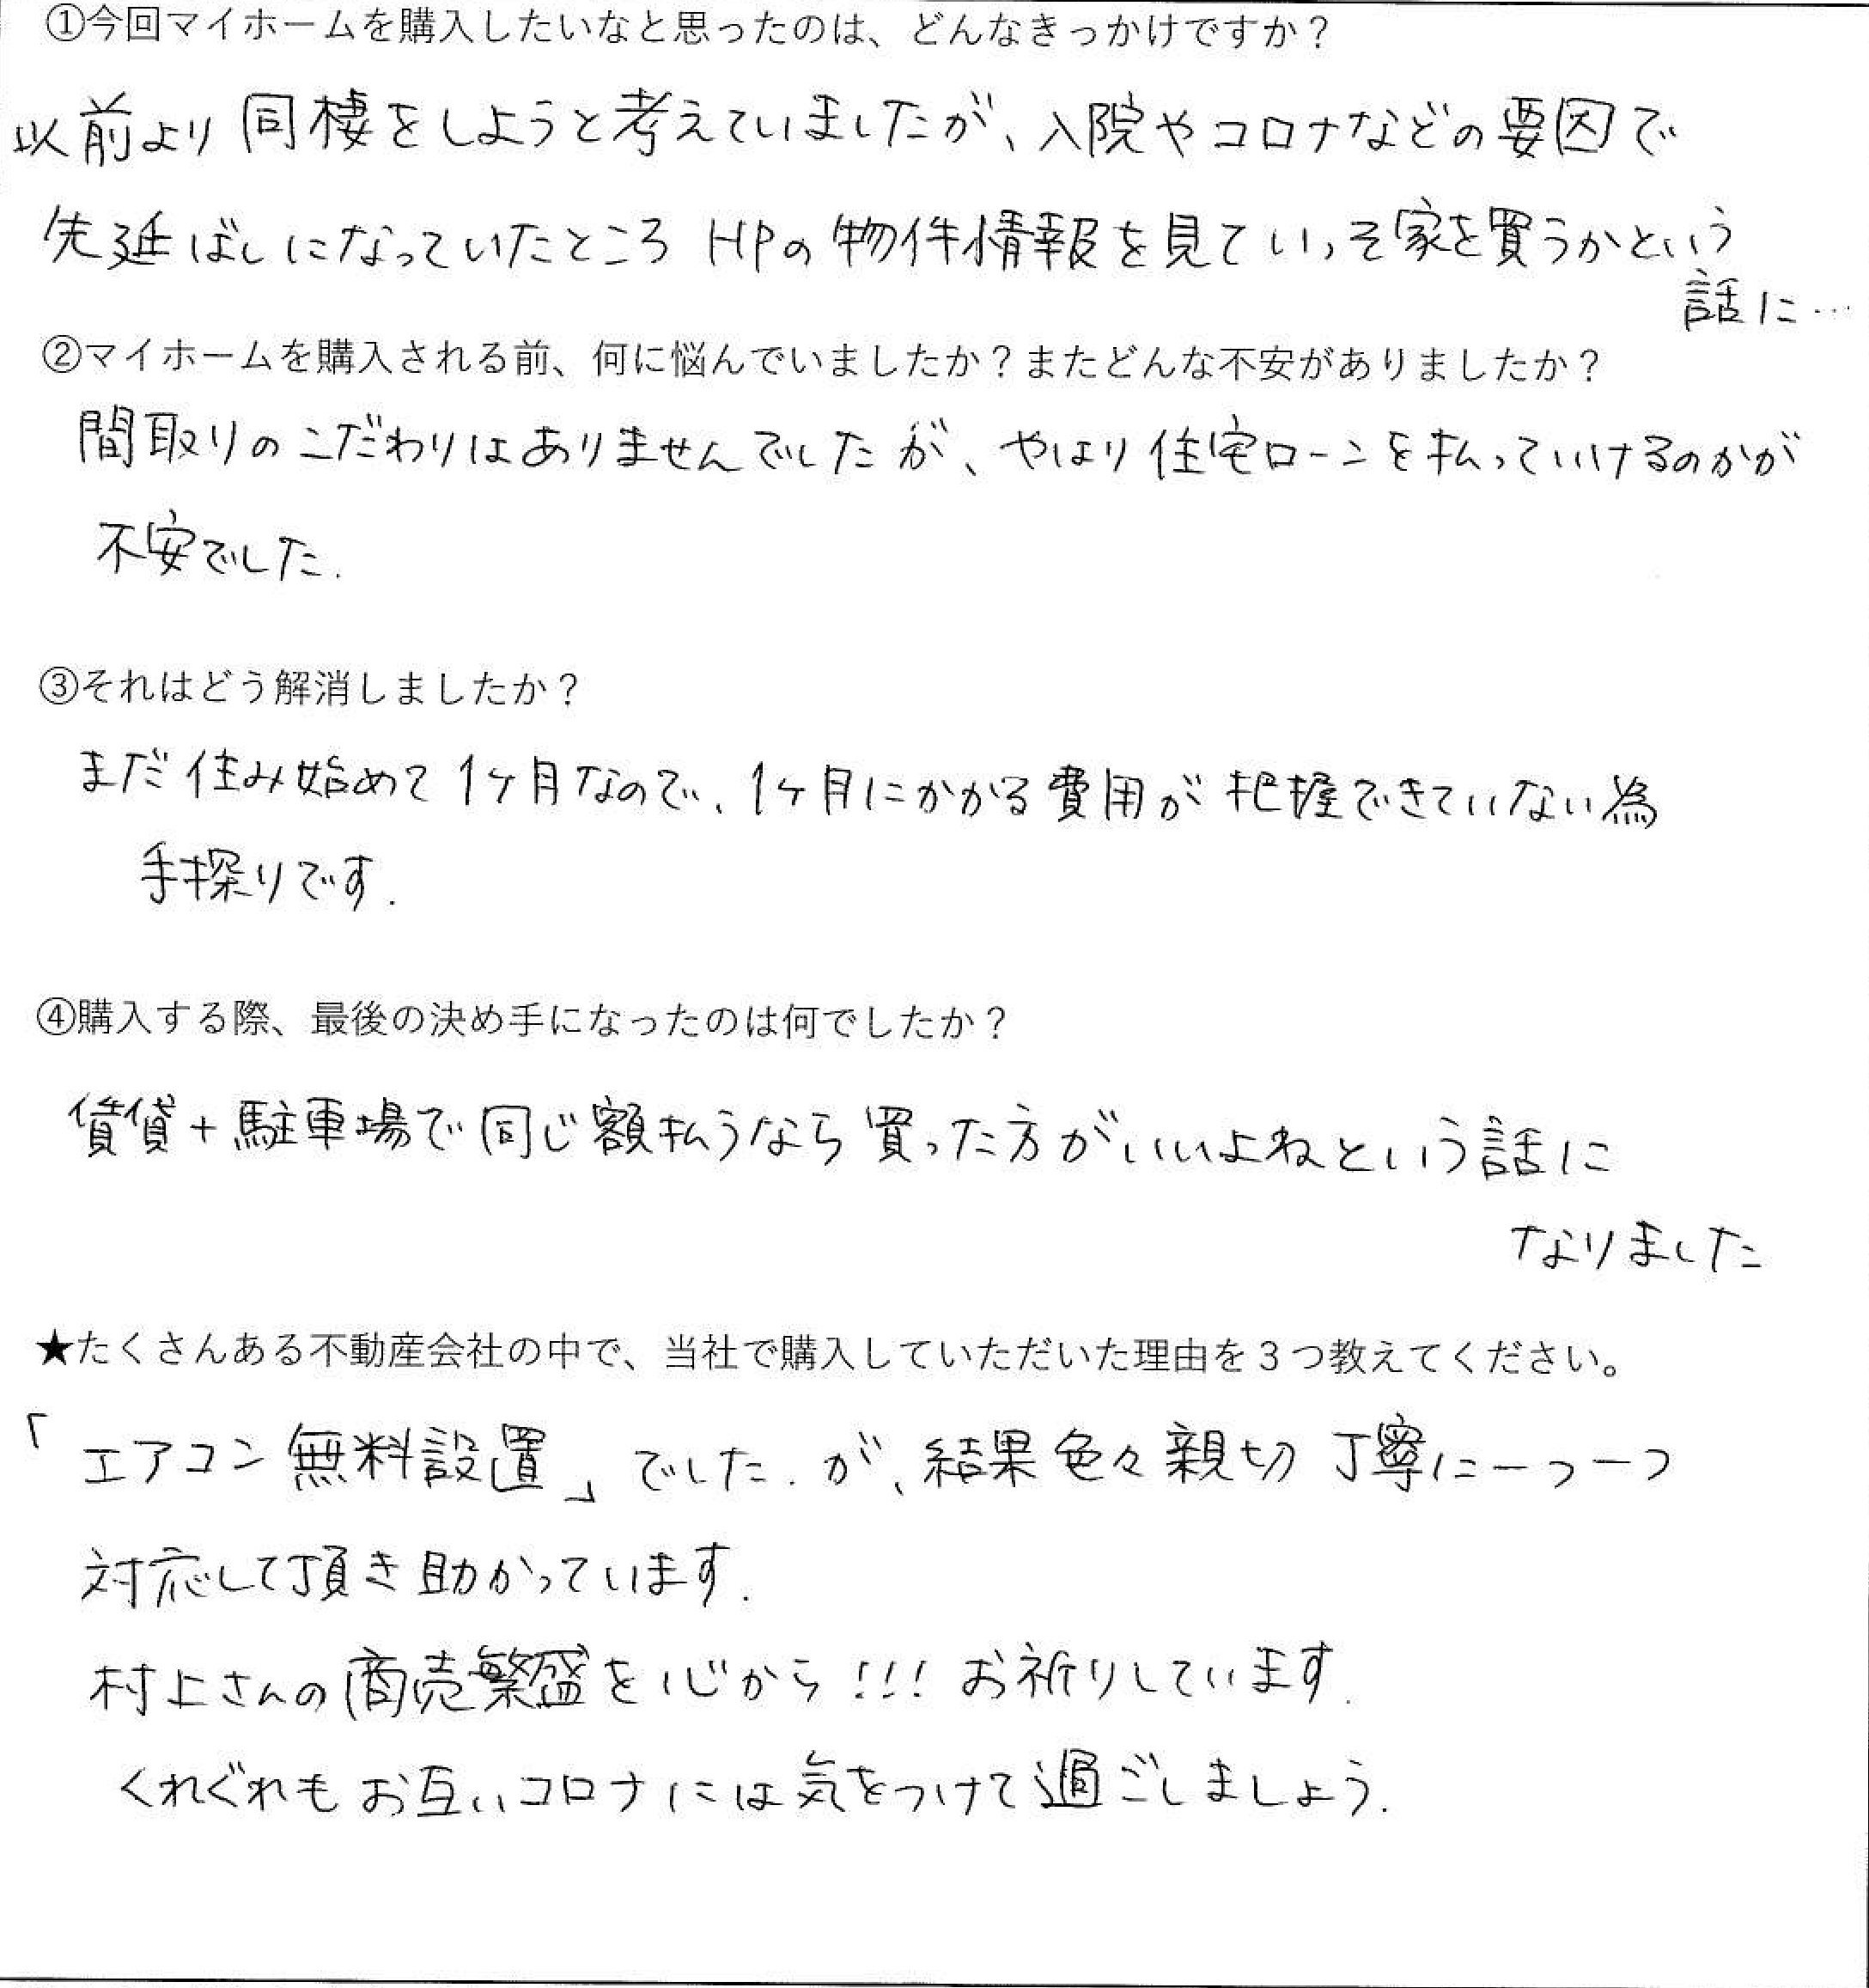 ①今回マイホームを購入したいなと思ったのは、どんなきっかけですか？
以前より同棲をしようと考えていましたが、入院やコロナなどの要因で
先延ばしになっていたところ HPの物件情報を見ていっそ家を買うかという
話に…
②マイホームを購入される前、何に悩んでいましたか？またどんな不安がありましたか？
間取りのこだわりはありませんでしたが、やはり住宅ローンを払っていけるのかが
不安でした.
③それはどう解消しましたか？
まだ住み始めて1ヶ月なので、1ヶ月にかかる費用が把握できていない為
手探りです.
④購入する際、最後の決め手になったのは何でしたか？
賃貸+駐車場で同じ額払うなら買った方がいいよねという話に
なりました
★たくさんある不動産会社の中で、当社で購入していただいた理由を３つ教えてください。
「エアコン無料設置」でした.が、結果色々親切丁寧に一つ一つ
対応して頂き助かっています.
村上さんの商売繁盛を心から!!!お祈りしています.
くれぐれもお互いコロナには気をつけて過ごしましょう.